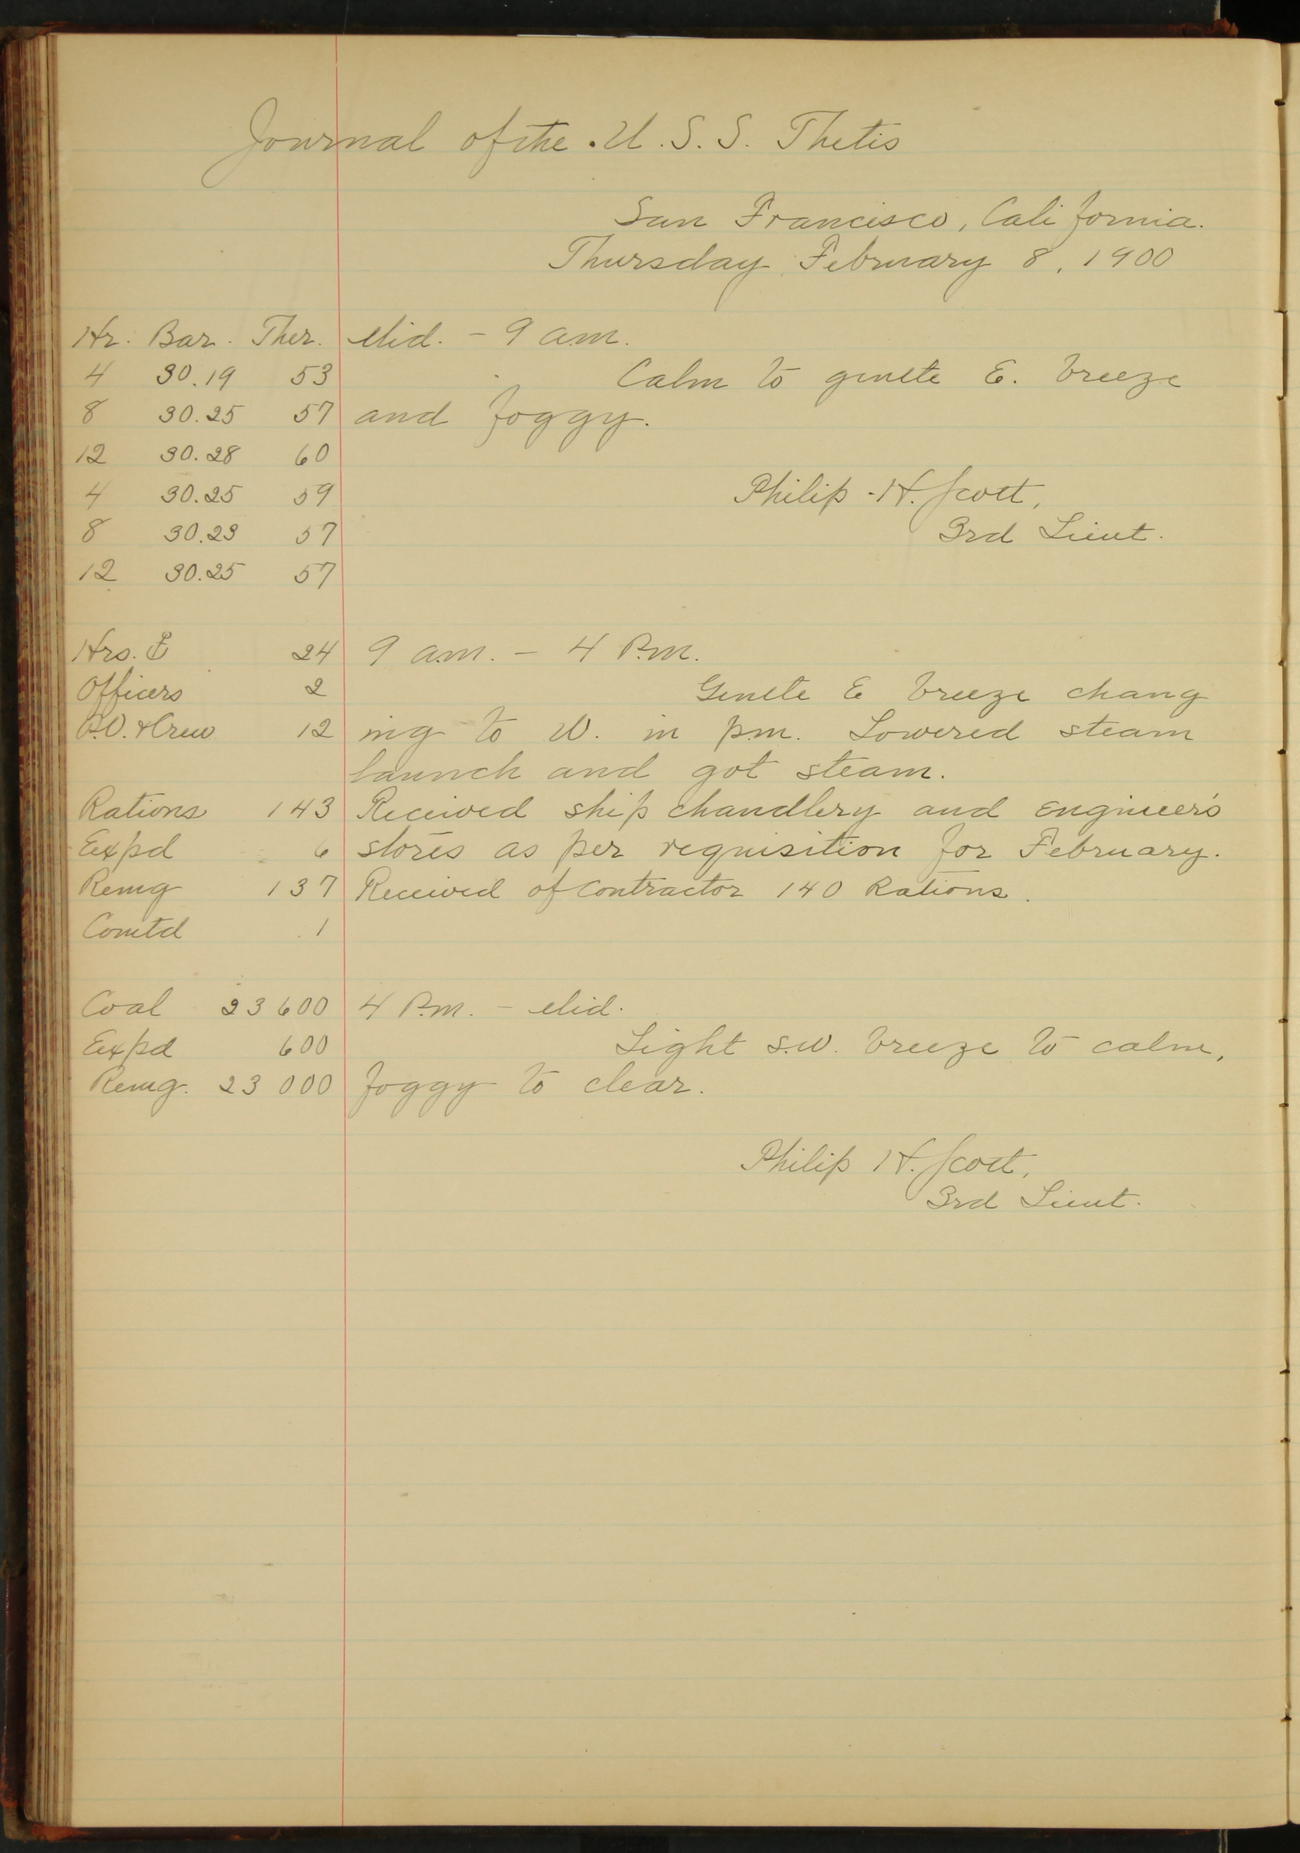 Journal of the U.S.S. Thetis
San Francisco, California.
Thursday February 8, 1900
Hr. Bar. Ther. Mid. - 9 a.m.
4 30.19 53 Calm to gentle E. breeze
8 30.25 57 and foggy.
12 30.28 60
4 30.25 59 Philip H. Scott,
8 30.23 57 3rd Lieut.
12 30.25 57
Hrs. ⚓ 24 9 a.m. - 4 P.m.
Officers 2 Gentle E breeze chang
P.O. & Crew 12 ing to W. in p.m. Lowered steam
launch and got steam.
Rations 143 Received ship chandlery and Engineer's
Expd 6 stores as per requisition for February.
Remg 137 Received of Contractor 140 Rations.
Comtd 1
Coal 23600 4 P.m. - Mid.
Expd 600 Light S.W. breeze to calm,
Remg. 23000 foggy to clear.
Philip H. Scott,
3rd Lieut.